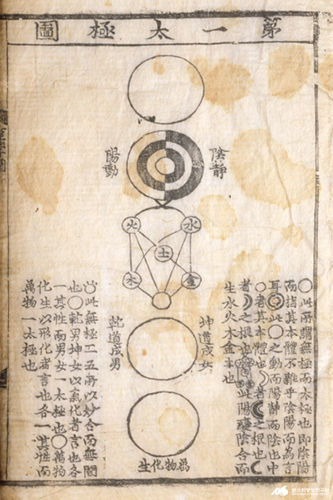 第一太極圖
陰靜
陽動
火 水
土
木 金
坤道成女
乾道成男
萬物化生
○此無極而太極也即陰陽
而指其本體不雜乎陰陽而為言
耳◎此○之動而陽靜而陰也中
○者其本體也☽者☾之根也☾
者☽之根也此陽變陰合而
生水火木金土也
此無極二五所以妙合而無間
也○乾男坤女以氣化者言也各
一其性而男女一太極也○萬物
化生以形化者言也各一其性而
萬物一太極也